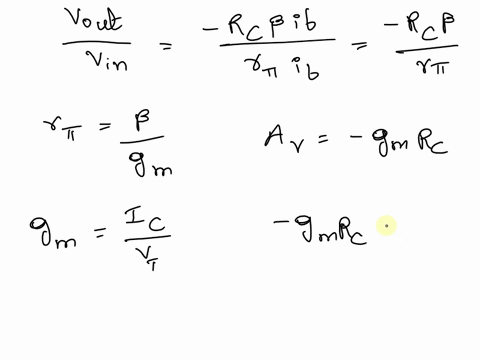 Vout/Vin = -R_C β ib / r_π ib = -R_C β / r_π
r_π = β / g_m
A_v = -g_m R_C
g_m = I_C / V_T
-g_m R_C